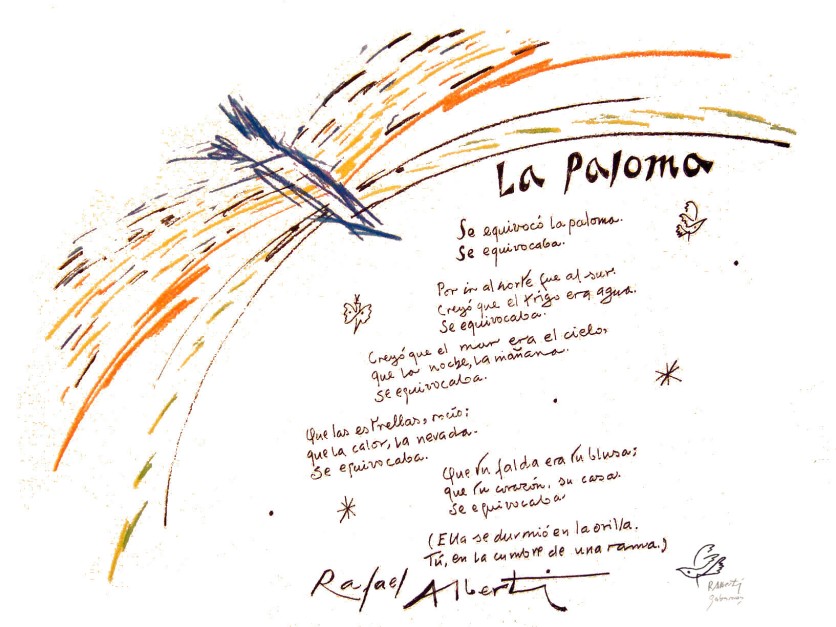 La Paloma
Se equivocó la paloma.
Se equivocaba.
Por ir al norte fue al sur.
Creyó que el trigo era agua.
Se equivocaba.
Creyó que el mar era el cielo,
que la noche, la mañana.
Se equivocaba.
Que las estrellas, rocío;
que la calor, la nevada.
Se equivocaba.
Que tu falda era tu blusa;
que tu corazón, su casa.
Se equivocaba.
(Ella se durmió en la orilla.
Tú, en la cumbre de una rama.)
Rafael Alberti
R. Alberti